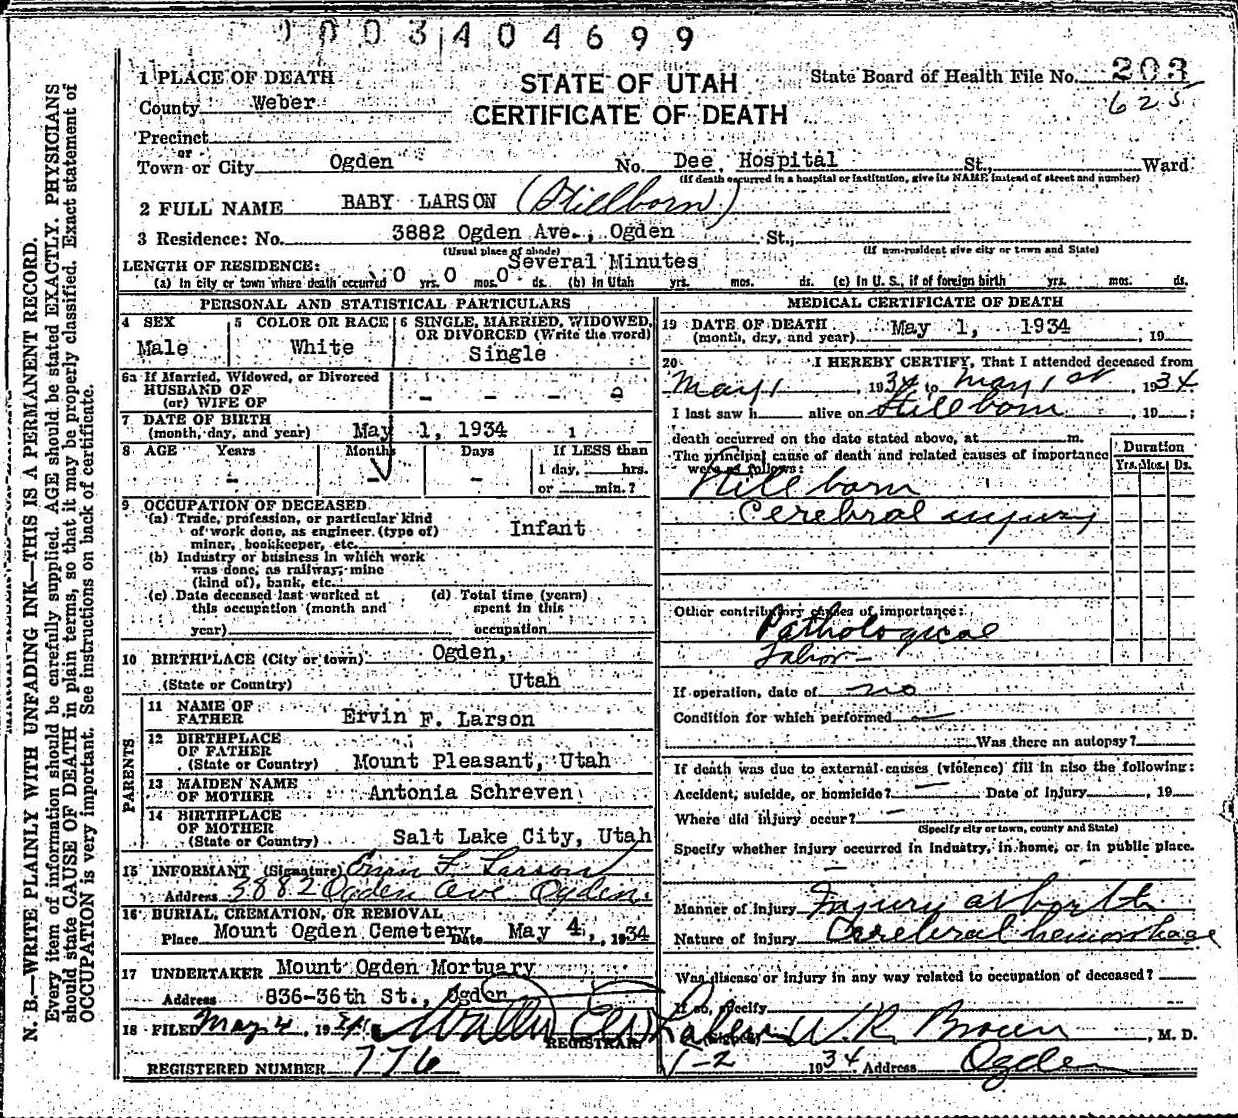 0003404699
1 PLACE OF DEATH
STATE OF UTAH
CERTIFICATE OF DEATH
State Board of Health File No. 203
625
County Weber
Precinct
or
Town or City Ogden No. Dee Hospital St., Ward
(If death occurred in a hospital or institution, give its NAME instead of street and number)
2 FULL NAME BABY LARSON (Stillborn)
3 Residence: No. 3882 Ogden Ave., Ogden St.,
(Usual place of abode) (If non-resident give city or town and State)
LENGTH OF RESIDENCE: Several Minutes
(a) In city or town where death occurred 0 yrs. 0 mos. 0 ds. (b) In Utah yrs. mos. ds. (c) In U. S., if of foreign birth yrs. mos. ds.
PERSONAL AND STATISTICAL PARTICULARS
4 SEX
Male
5 COLOR OR RACE
White
6 SINGLE, MARRIED, WIDOWED, OR DIVORCED (Write the word)
Single
6a If Married, Widowed, or Divorced
HUSBAND OF
(or) WIFE OF
7 DATE OF BIRTH
(month, day, and year) May 1, 1934
8 AGE Years Months Days If LESS than
1 day, hrs.
or min.?
9 OCCUPATION OF DECEASED
(a) Trade, profession, or particular kind
of work done, as engineer (type of)
miner, bookkeeper, etc. Infant
(b) Industry or business in which work
was done, as railway, mine
(kind of), bank, etc.
(c) Date deceased last worked at
this occupation (month and
year)
(d) Total time (years)
spent in this
occupation
10 BIRTHPLACE (City or town) Ogden,
(State or Country) Utah
PARENTS
11 NAME OF
FATHER Ervin F. Larson
12 BIRTHPLACE
OF FATHER
(State or Country) Mount Pleasant, Utah
13 MAIDEN NAME
OF MOTHER Antonia Schreven
14 BIRTHPLACE
OF MOTHER
(State or Country) Salt Lake City, Utah
15 INFORMANT (Signature) Ervin F. Larson
Address 3882 Ogden Ave Ogden.
16 BURIAL, CREMATION, OR REMOVAL
Place Mount Ogden Cemetery Date May 4, 1934
17 UNDERTAKER Mount Ogden Mortuary
Address 836-36th St., Ogden
18 FILED May 4, 1934
REGISTRAR
REGISTERED NUMBER 776
MEDICAL CERTIFICATE OF DEATH
19 DATE OF DEATH
(month, day, and year) May 1, 1934, 19
20 I HEREBY CERTIFY, That I attended deceased from
May 1 1934, to May 1st, 1934
I last saw h alive on Stillborn, 19 ;
death occurred on the date stated above, at m.
The principal cause of death and related causes of importance
were as follows:
Duration
Yrs. Mos. Ds.
Stillborn
Cerebral injury
Other contributory causes of importance:
Pathological
Labor
If operation, date of no
Condition for which performed
Was there an autopsy?
If death was due to external causes (violence) fill in also the following:
Accident, suicide, or homicide? Date of injury , 19
Where did injury occur?
(Specify city or town, county and State)
Specify whether injury occurred in industry, in home, or in public place.
Manner of injury Injury at birth
Nature of injury Cerebral hemorrhage
Was disease or injury in any way related to occupation of deceased?
If so, specify
(Signed) W. R. Brown, M. D.
5-2 1934 Address Ogden
N. B.—WRITE PLAINLY WITH UNFADING INK—THIS IS A PERMANENT RECORD.
Every item of information should be carefully supplied. AGE should be stated EXACTLY. PHYSICIANS
should state CAUSE OF DEATH in plain terms, so that it may be properly classified. Exact statement of
OCCUPATION is very important. See instructions on back of certificate.